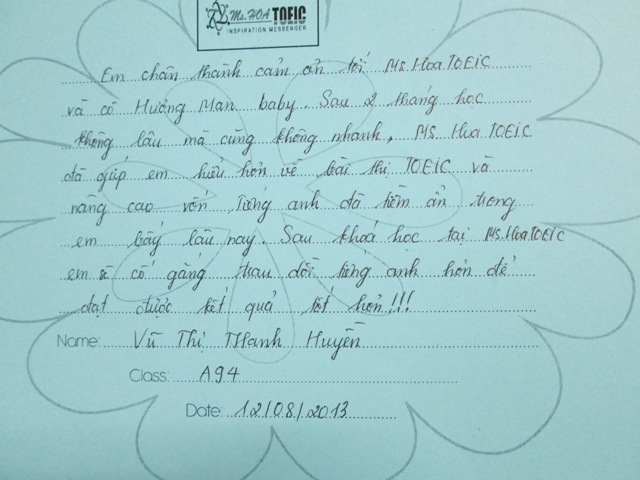 Ms. HOA TOEIC
INSPIRATION MESSENGER
Em chân thành cảm ơn tới Ms Hoa TOEIC
và cô Hương Man baby. Sau 2 tháng học
không lâu mà cũng không nhanh, Ms Hoa TOEIC
đã giúp em hiểu hơn về bài thi TOEIC và
nâng cao vốn Tiếng anh đã tiềm ẩn trong
em bấy lâu nay. Sau khoá học tại Ms.HoaTOEIC
em sẽ cố gắng trau dồi tiếng anh hơn để
đạt được kết quả tốt hơn!!!
Name: Vũ Thị Thanh Huyền
Class: A94
Date: 12/08/2013